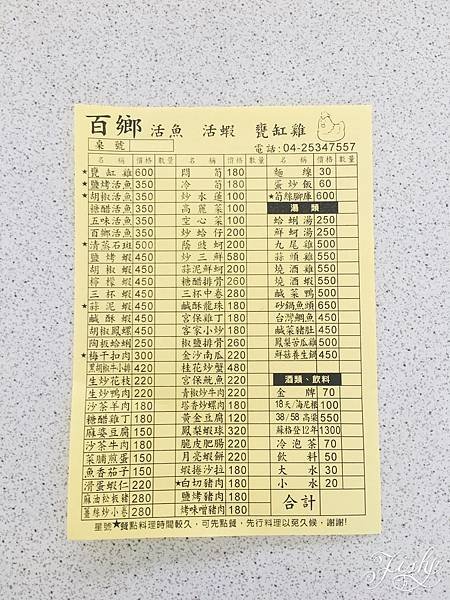 百鄉 活魚 活蝦 甕缸雞
桌號 電話:04-25347557
名稱 價格 數量 名稱 價格 數量 名稱 價格 數量
★甕缸雞 600 悶筍 180 麵線 30
★鹽烤活魚 350 冷筍 180 蛋炒飯 60
★胡椒活魚 350 炒水蓮 100 ★筍絲腳庫 600
糖醋活魚 350 高麗菜 100 湯類
五味活魚 350 空心菜 100 蛤蜊湯 250
百鄉活魚 350 炒蛤仔 200 鮮蚵湯 250
★清蒸石斑 500 蔭豉蚵 200 九尾雞 500
鹽烤蝦 450 炒三鮮 580 蒜頭雞 550
胡椒蝦 450 蒜泥鮮蚵 200 燒酒雞 550
檸檬蝦 450 糖醋排骨 260 燒酒蝦 550
三杯蝦 450 三杯中卷 280 鹹菜鴨 500
★蒜泥蝦 450 鹹酥龍珠 180 砂鍋魚頭 650
鹹酥蝦 450 宮保雞丁 180 台灣鯛魚 450
胡椒鳳螺 450 客家小炒 180 鹹菜豬肚 450
陶板蛤蜊 250 椒鹽排骨 260 鳳梨苦瓜雞 500
★梅干扣肉 300 金沙南瓜 220 鮮菇養生鍋 450
黑胡椒牛小排 420 桂花炒蟹 480
生炒花枝 220 宮保魷魚 220 酒類、飲料
生炒鴨肉 220 青椒炒牛肉 220 金牌 70
沙茶羊肉 180 塔香炒螺肉 180 18天/海尼根 100
糖醋雞丁 180 黃金豆腐 200 38/58高粱 550
麻婆豆腐 150 鳳梨蝦球 320 蘇格登12年 1300
沙茶牛肉 180 脆皮肥腸 220 冷泡茶 70
菜脯煎蛋 150 月亮蝦餅 220 飲料 50
魚香茄子 150 蝦捲沙拉 180 大水 30
滑蛋蝦仁 220 ★白切豬肉 180 小水 20
麻油松板豬 280 鹽烤豬肉 180 合計
薑絲炒小卷 280 烤味噌豬肉 180
星號★餐點料理時間較久，可先點餐，先行料理以免久候，謝謝!